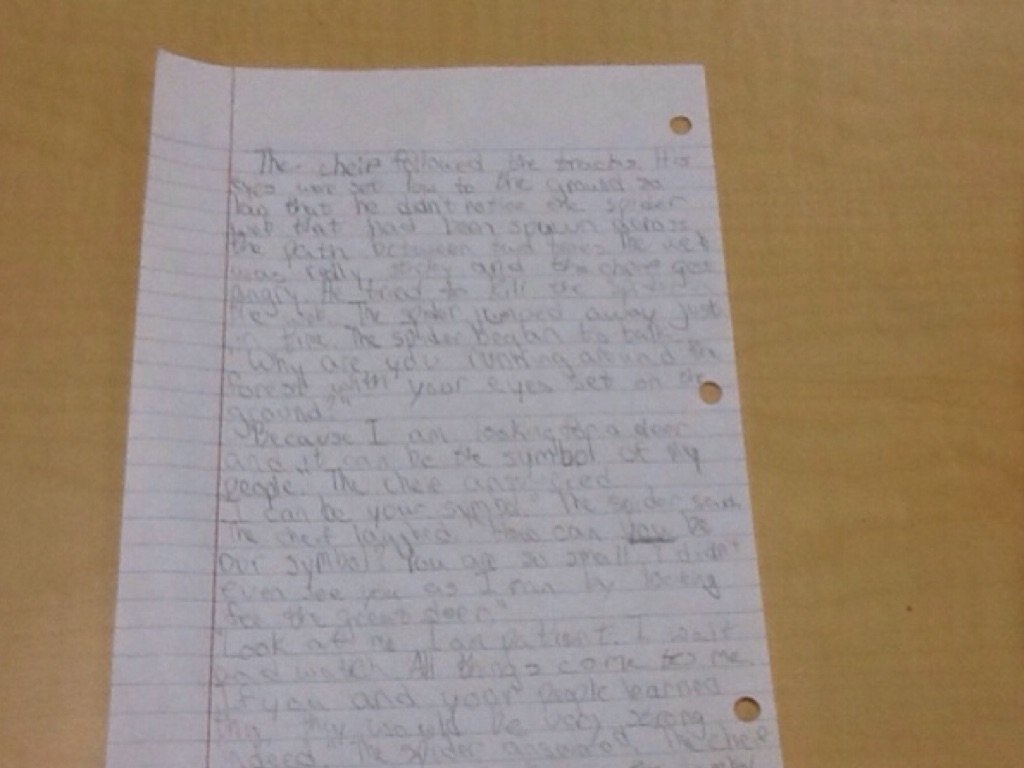 The cheif followed the tracks. His
eyes were set low to the ground so
low that he didn't notice the spider
web that had been spawn across
the path between two trees the web
was really sticky and the cheif got
angry. He tried to kill the spider in
the web. The spider jumped away just
in time. The spider began to talk.
"Why are you running around the
forest with your eyes set on the
ground?"
"Because I am looking for a deer
and it can be the symbol of my
people." The cheif answered
"I can be your symbol" The spider said.
The cheif laughed. "How can you be
our symbol? You are so small I didn't
even see you as I ran by looking
for the great deer."
"Look at me I am patient. I wait
and watch. All things come to me.
If you and your people learned
this, they would be very strong
indeed." The spider answered. The cheif
symbol